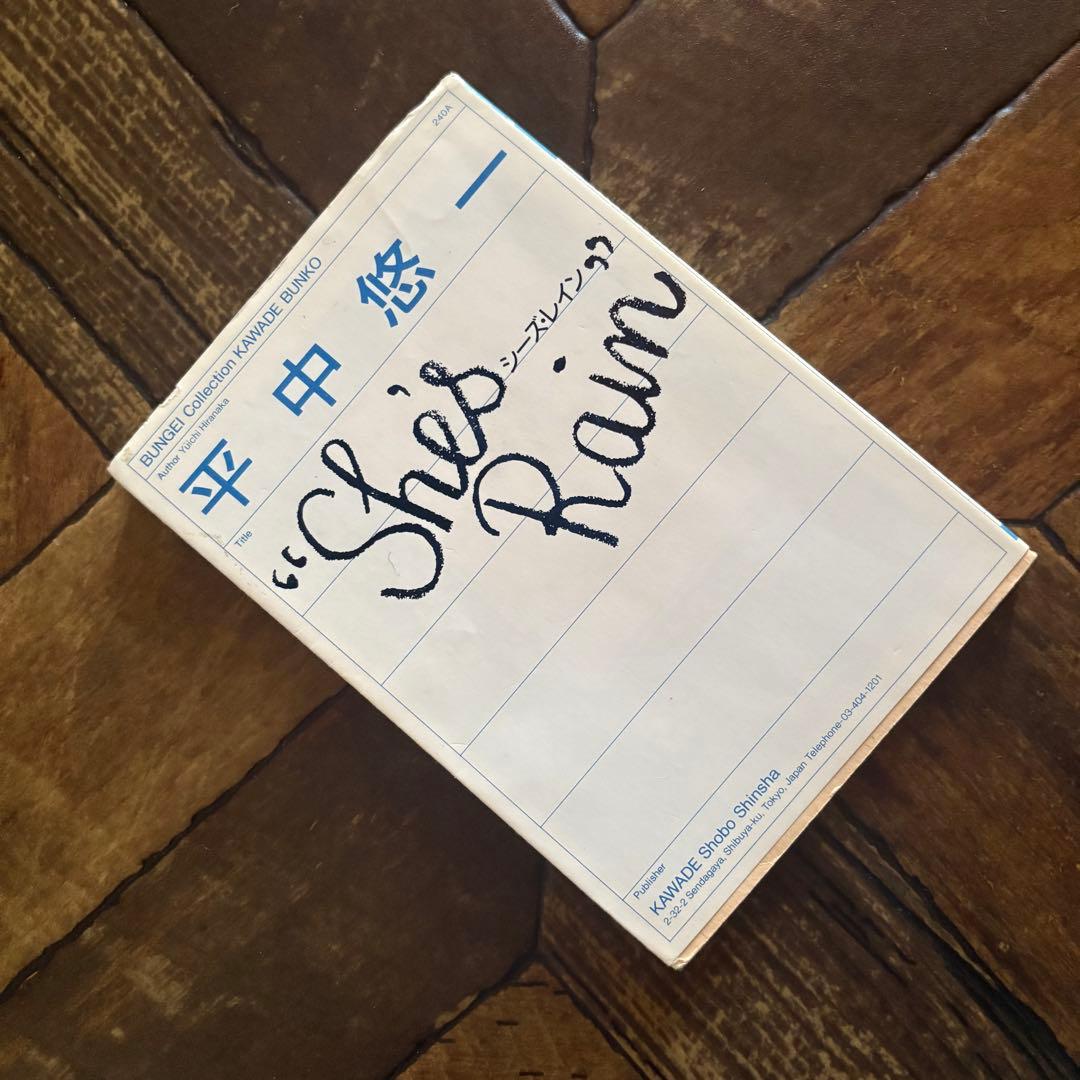 240A
BUNGEI Collection KAWADE BUNKO
Author Yūichi Hiranaka
平中悠一
Title
“She's
シーズ・レイン
Rain”
Publisher
KAWADE Shobo Shinsha
2-32-2 Sendagaya, Shibuya-ku, Tokyo, Japan Telephone-03-404-1201